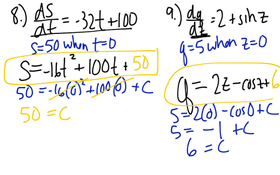 8.) dS/dt = -32t+100
S=50 when t=0
S=-16t²+100t+50
50=-16(0)²+100(0)+C
50=C
9.) dq/dz = 2+sinz
q=5 when z=0
q=2z-cosz+6
5=2(0)-cos0+C
5=-1+C
6=C